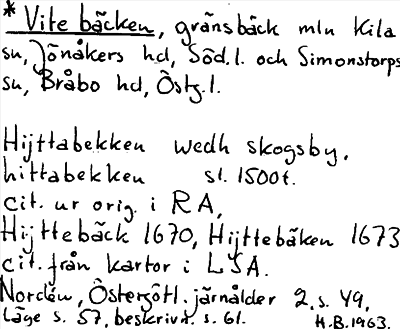 * Vite bäcken, gränsbäck mln Kila
sn, Jönåkers hd, Söd.l. och Simonstorps
sn, Bråbo hd, Östg.l.
Hijttabekken wedh skogsby.
hittabekken sl. 1500t.
cit. ur orig. i RA,
Hijttebäck 1670, Hijttebäken 1673
cit. från kartor i LSA.
Nordén, Östergötl. järnålder 2, s. 49,
Läge s. 57, beskrivn. s. 61.
H.B. 1963.